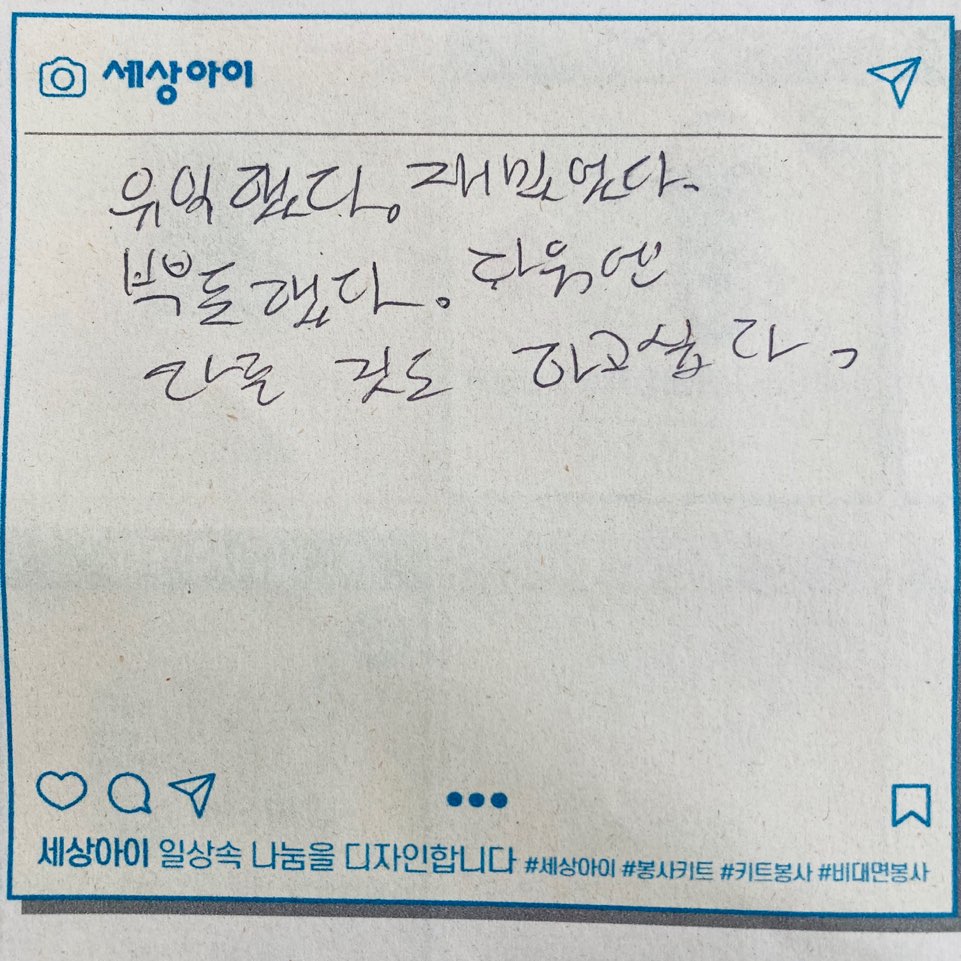 세상아이
유익했다. 재밌었다.
뿌듯했다. 다음엔
다른 것도 하고싶다.
세상아이 일상속 나눔을 디자인합니다 #세상아이 #봉사키트 #키트봉사 #비대면봉사